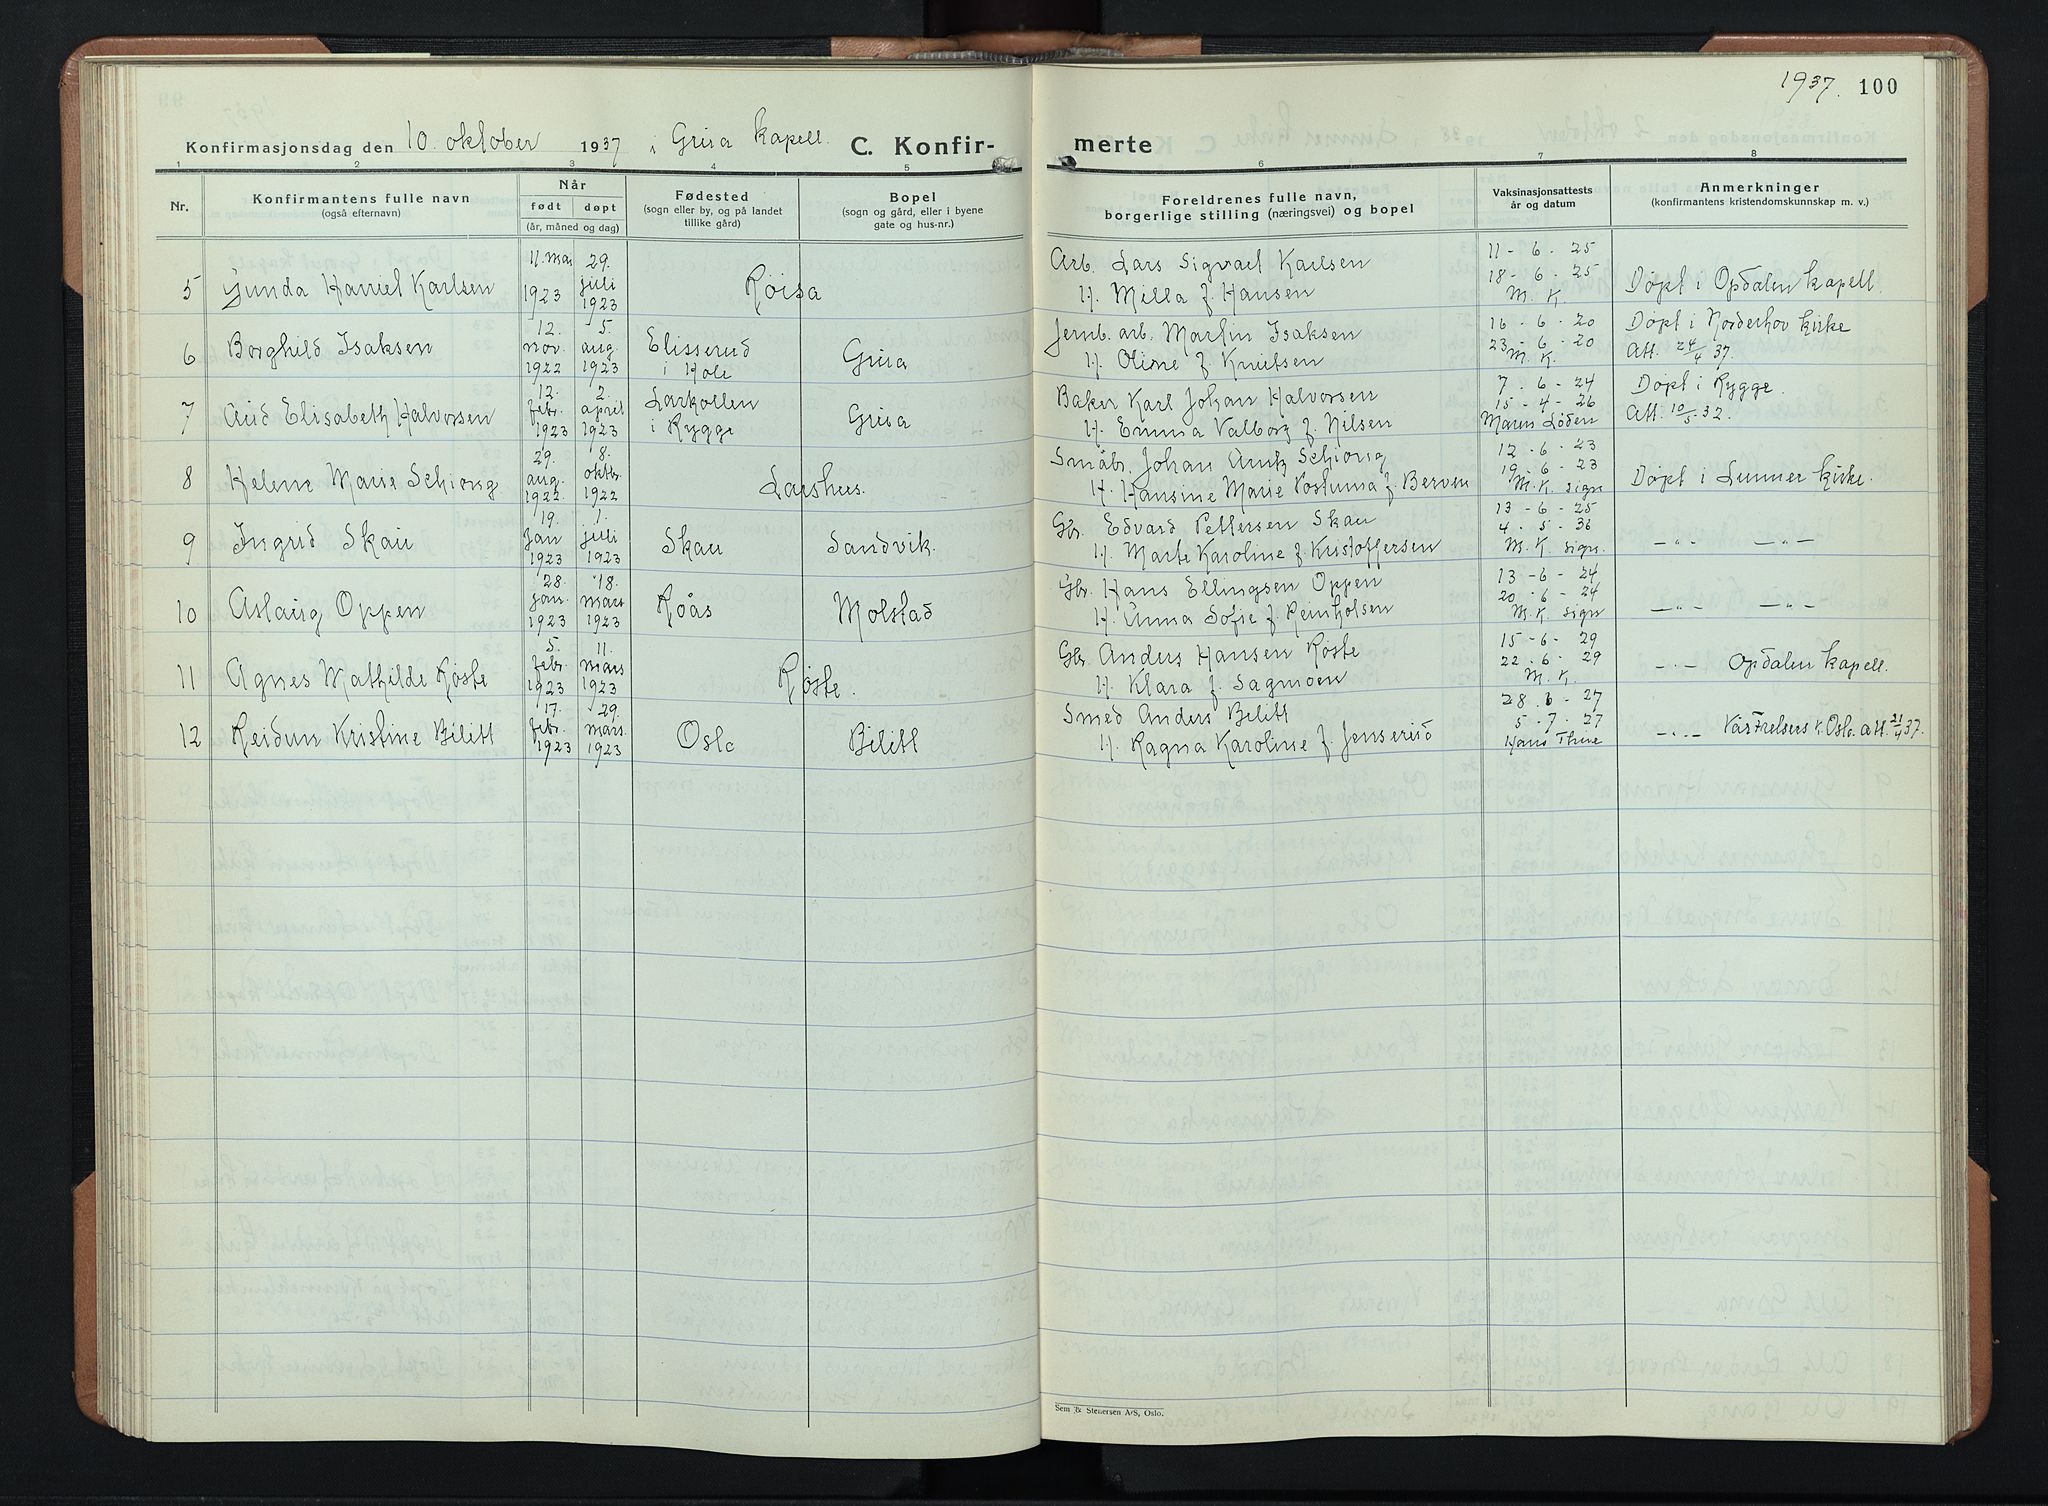 1937. 100
Konfirmasjonsdag den 10. oktober 1937 i Grua kapell. C. Konfir-
merte
1 2 3 4 5 6 7 8
Nr.
Konfirmantens fulle navn
(også efternavn)
Når
født døpt
(år, måned og dag)
Fødested
(sogn eller by, og på landet
tillike gård)
Bopel
(sogn og gård, eller i byene
gate og hus-nr.)
Foreldrenes fulle navn,
borgerlige stilling (næringsvei) og bopel
Vaksinasjonsattests
år og datum
Anmerkninger
(konfirmantens kristendomskunnskap m. v.)
11. mas 29. Arb. Lars Sigvart Karlsen 11 - 6 - 25
5 Gunda Harriet Karlsen 1923 juli 1923 Røisa H. Milla f. Hansen 18 - 6 - 25 M. K. Døpt i Opdalen kapell.
12. 5. Jernb. arb. Martin Isaksen 16 - 6 - 20 Døpt i Norderhov kirke
6 Borghild Isaksen nov. aug. Elisserud Grua 23 - 6 - 20
1922 1923 i Hole H. Oline f. Knutsen M. K. Att. 24/4 37.
12. 2. Larkollen Baker Karl Johan Halvorsen 7. 6 - 24 Døpt i Rygge.
7 Aud Elisabeth Halvorsen febr. april Grua 15 - 4 - 26
1923 1923 i Rygge H. Emma Valborg f. Nilsen Maren Løden Att. 10/5 32.
29. 8. Småbr. Johan Arntz Schiong 12 - 6 - 23
8 Helene Marie Schiong aug. oktbr. Larshus. 19. 6 - 23 Døpt i Lunner kirke.
1922. 1922 H. Hansine Marie Postuma f. Berven M. K. sign
19. 1. Gbr. Edvard Pettersen Skau 13 - 6 - 25
9 Ingrid Skau jan juli Skau Sandvik. 4 - 5 - 36 — " — — " —
1923 1923 H. Marte Karoline f. Kristoffersen M. K. sign.
28. 18. Gbr. Hans Ellingsen Oppen 13 - 6 - 24
10 Aslaug Oppen jan. mars Røås Molstad 20. 6 - 24 — " — — " —
1923 1923 H. Anna Sofie f. Reinholsen M. K. sign
5. 11. Gbr. Anders Hansen Røste 15 - 6 - 29
11 Agnes Mathilde Røste febr. mars Røste. 22. 6 - 29 — " — Opdalen kapell.
1923 1923 H. Klara f. Sagmoen M. K.
17. 29. Smed Anders Bilitt 28. 6 - 27
12 Reidun Kristine Bilitt febr. mars. Oslo Bilitt 5 - 7 - 27 — " — Vår Frelsers k. Oslo. att. 21/4 37.
1923 1923 H. Ragna Karoline f. Jenserud Hans Thue
Sem & Stenersen A/S, Oslo.